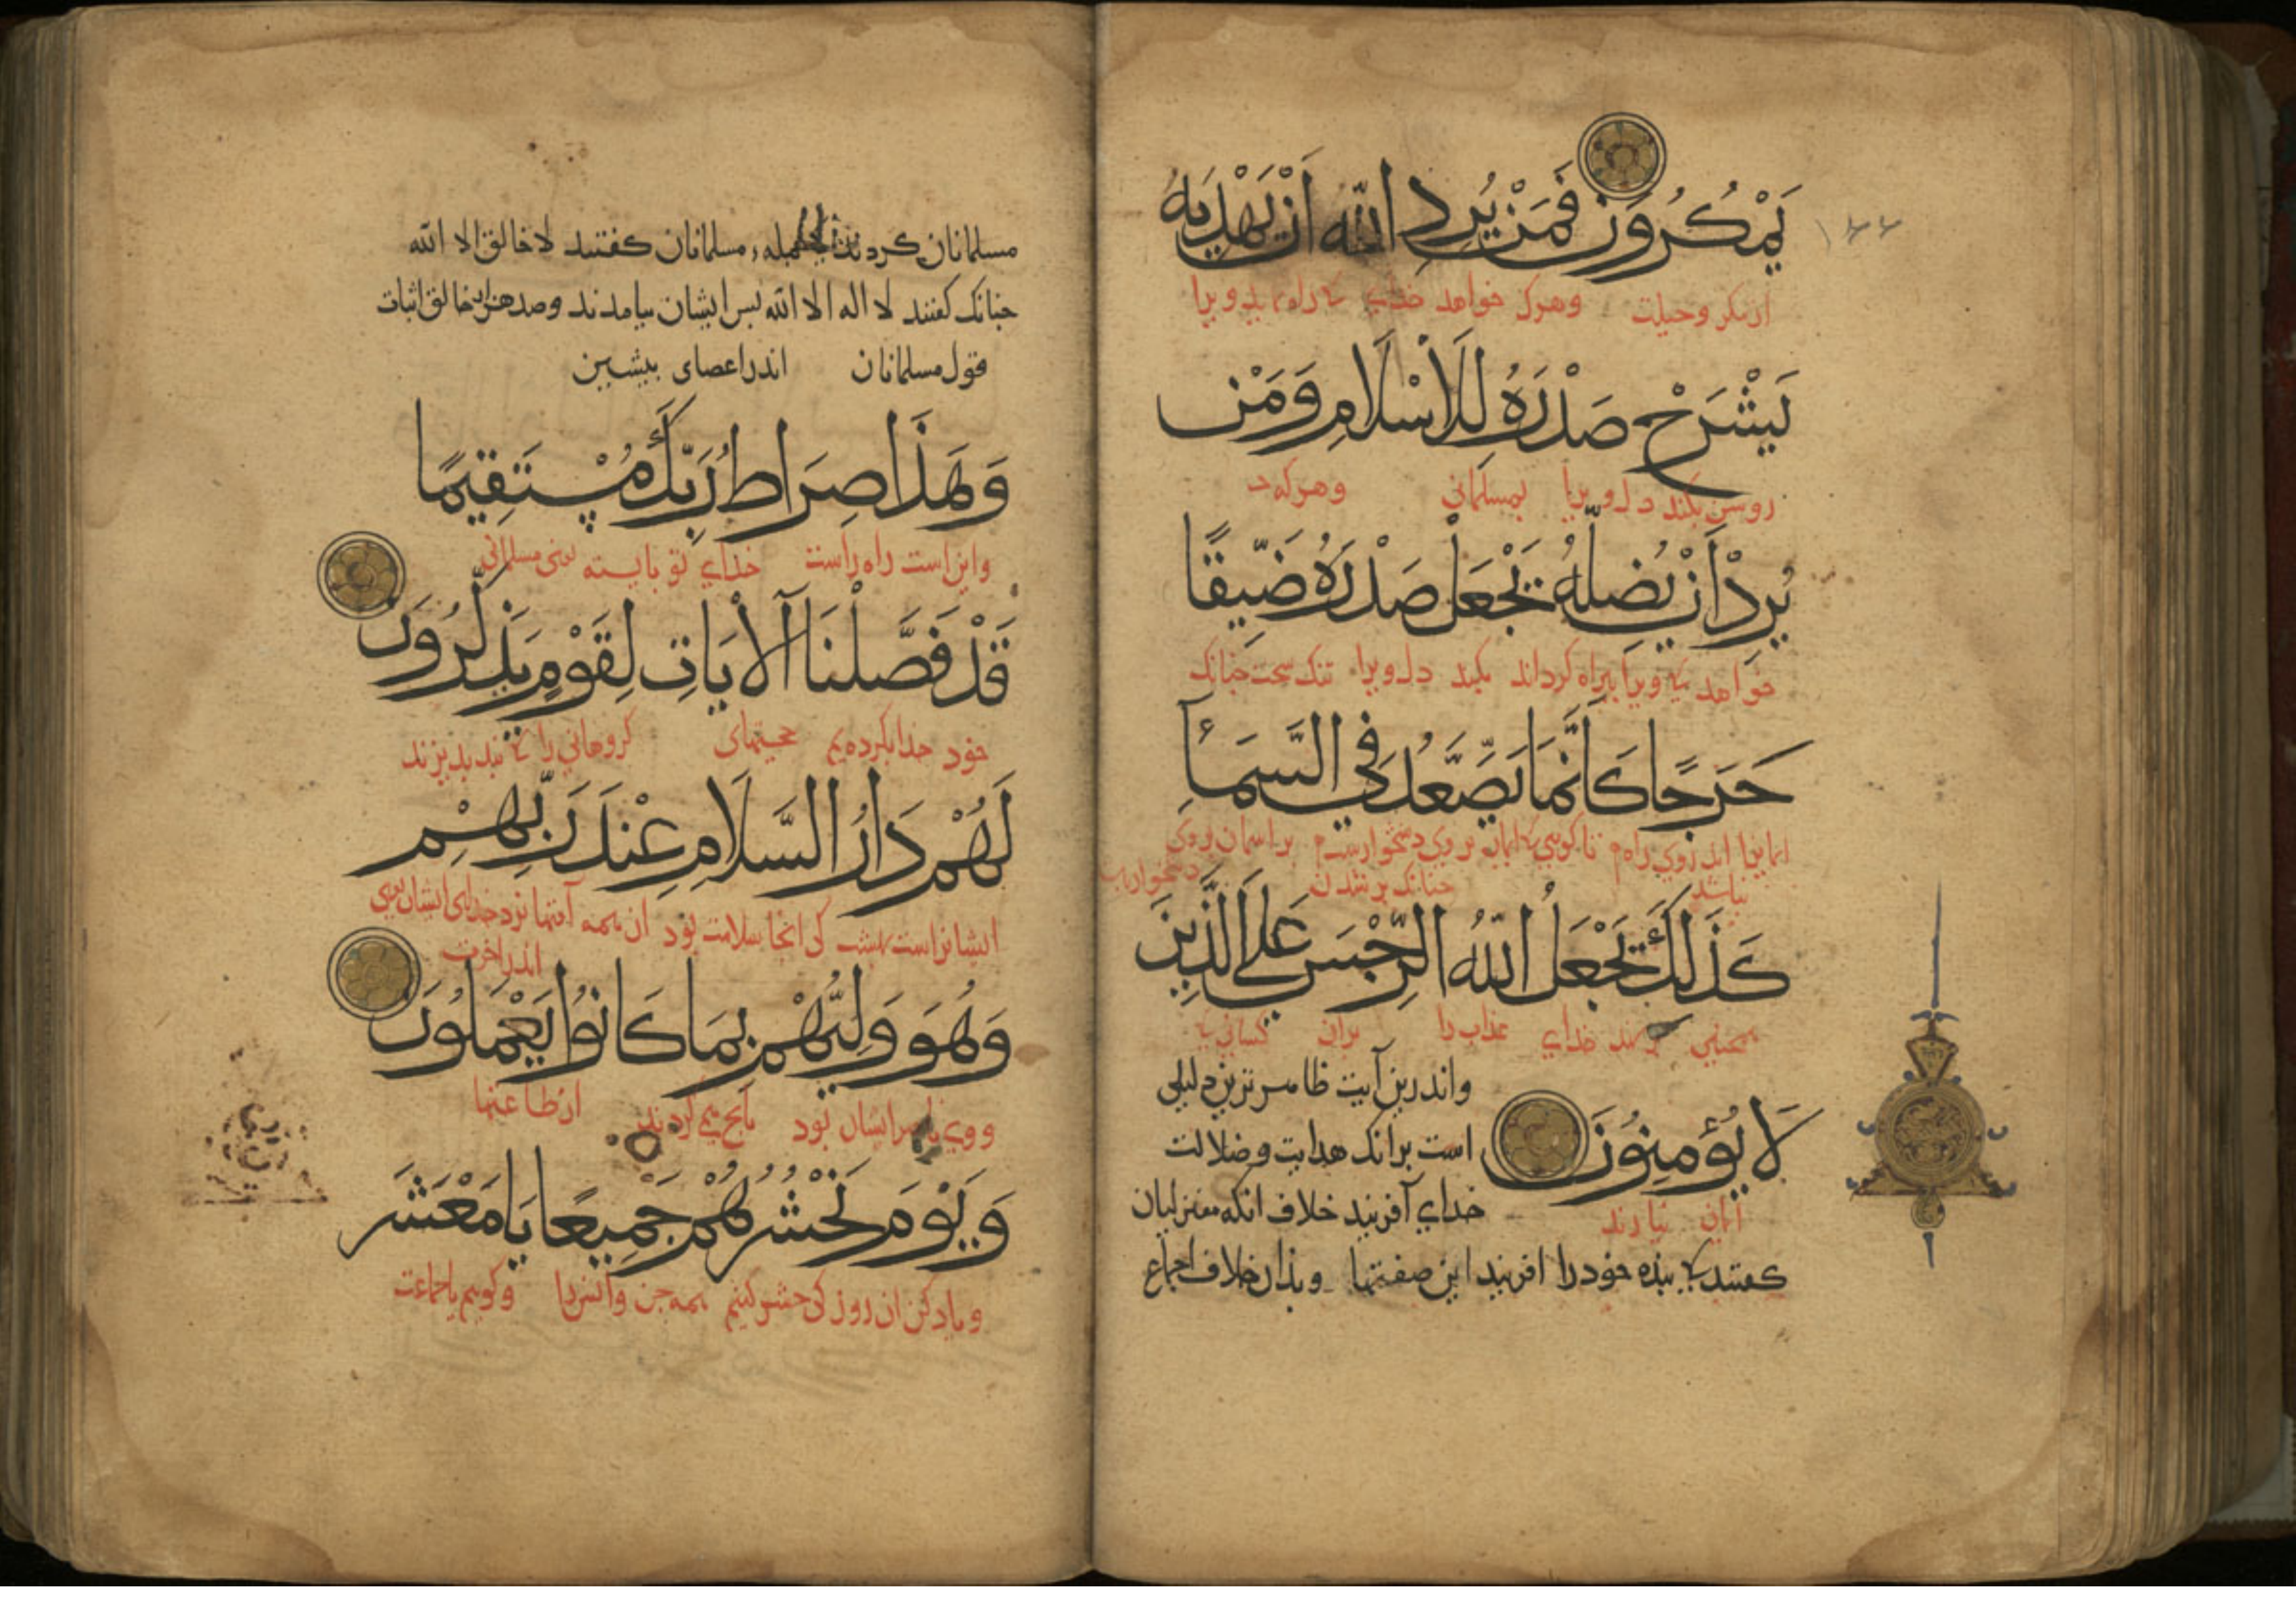 يَمْكُرُونَ فَمَنْ يُرِدِ اللّٰهُ اَنْ يَهْدِيَهُ
١٤٤
از مکر وحیلت وهرک خواهد خدای کی راه نماید ویرا
يَشْرَحْ صَدْرَهُ لِلْاِسْلَامِ وَمَنْ
روشن بکند دل ویرا بمسلمانی وهرکه
يُرِدْ اَنْ يُضِلَّهُ يَجْعَلْ صَدْرَهُ ضَيِّقًا
خواهد کی ویرا بیراه کرداند بکند دل ویرا تنک سخت چنانک
حَرَجًا كَاَنَّمَا يَصَّعَّدُ فِي السَّمَآءِ
اندروی راه تا کویی بر وی دشخوارست بر اسمان
نباشد چنانک بر شدن
كَذٰلِكَ يَجْعَلُ اللّٰهُ الرِّجْسَ عَلَى الَّذِينَ
همچنین خدای عذاب را بران کسانی کی
لَا يُؤْمِنُونَ
ایمان نیارند
واندرین آیت ظاهرترین دلیلی
است برانک هدایت وضلالت
خدای آفریند خلاف انکه معتزلیان
کفتند کی بنده خود را افریند این صفتها وبذان خلاف اجماع
مسلمانان کردند مسلمانان کفتند لا خالق الا الله
چنانک کفتند لا اله الا الله پس ایشان بیامدند وصد هزار خالق اثبات
قول مسلمانان اندر اعصای پیشین
وَهٰذَا صِرَاطُ رَبِّكَ مُسْتَقِيمًا
واین است راه راست خدای تو بایسته یعنی مسلمانی
قَدْ فَصَّلْنَا الْاٰيَاتِ لِقَوْمٍ يَذَّكَّرُونَ
خود جدا بکرده‌یم حجتهای کروهانی را کی پند پذیرند
لَهُمْ دَارُ السَّلَامِ عِنْدَ رَبِّهِمْ
ایشانراست بهشت کی انجا سلامت بود از همه آفتها نزد خدای ایشان یعنی
اندر اخرت
وَهُوَ وَلِيُّهُمْ بِمَا كَانُوا يَعْمَلُونَ
ووی ایشان بود بانچ می کردند از طاعتها
وَيَوْمَ نَحْشُرُهُمْ جَمِيعًا يَا مَعْشَرَ
ویاد کن ان روز کی حشر کنیم همه جن وانس را وکویم یا جماعت